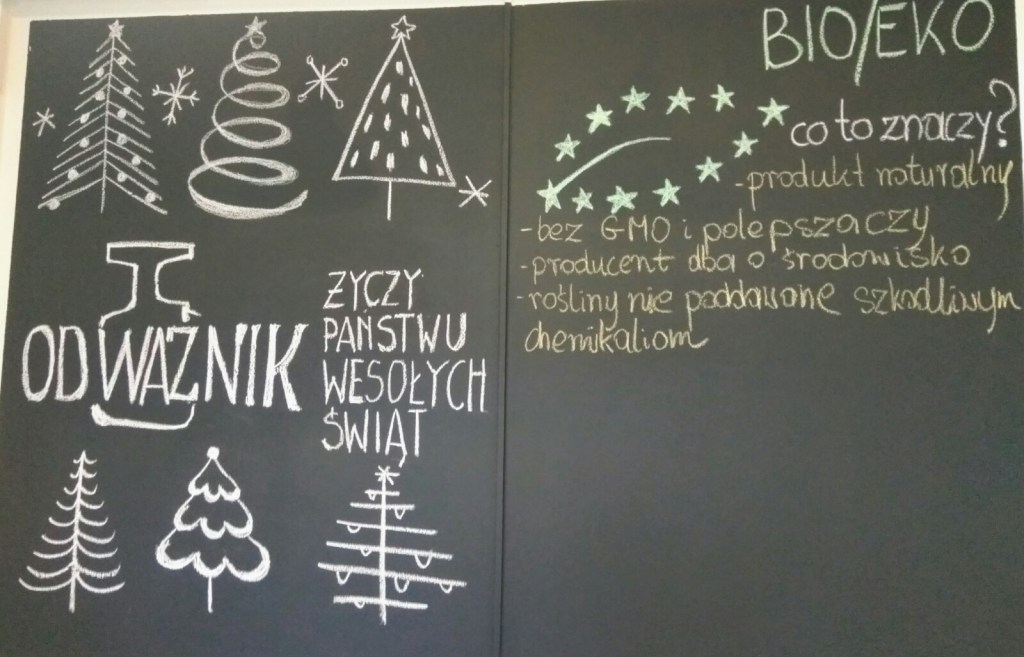 ODWAŻNIK
ŻYCZY
PAŃSTWU
WESOŁYCH
ŚWIĄT
BIO/EKO
co to znaczy?
- produkt naturalny
- bez GMO i polepszaczy
- producent dba o środowisko
- rośliny nie poddawane szkodliwym
chemikaliom